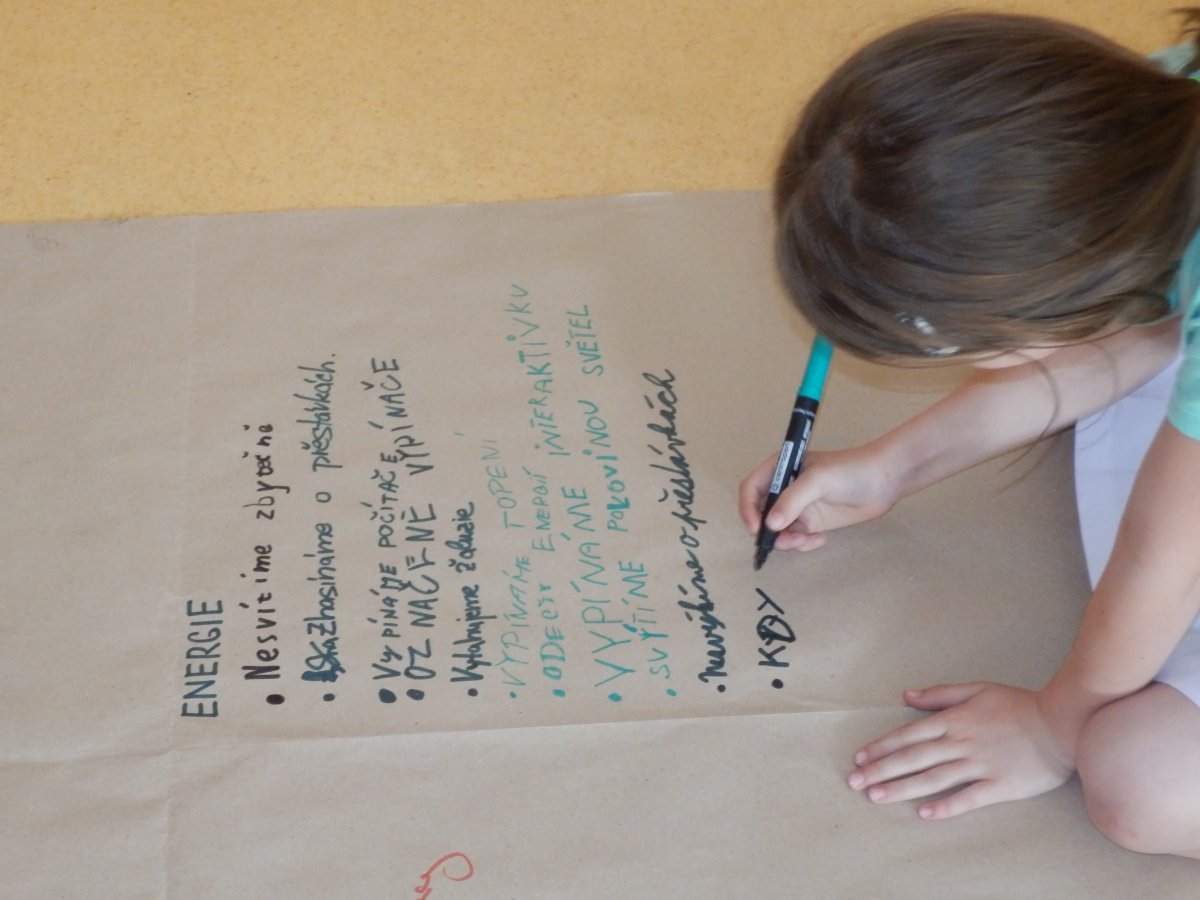 ENERGIE
• Nesvítíme zbytečně
• Zhasínáme o přestávkách.
• Vypínáme POČÍTAČE
• OZNAČENÉ VYPÍNAČE
• Vytahujeme žaluzie
• VYPÍNÁME TOPENÍ
• ODEČTY ENERGIÍ INTERAKTIVKU
• VYPÍNÁME
• SVÝTÍME POLOVINOU SVĚTEL
• o přestávkách
• KDY